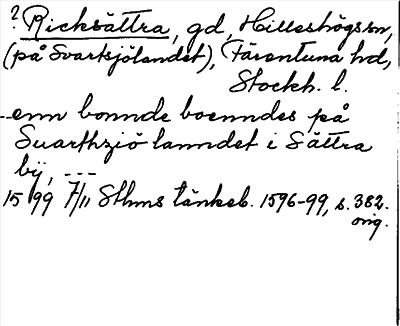 ? Ricksättra, gd, Hilleshögs sn,
(på Svartsjölandet), Färentuna hd,
Stockh. l.
--enn bonnde boenndes på
Suarthziö lanndet i Sättra
bÿ, ---
1599 7/11 Sthms tänkeb. 1596-99, s. 382.
orig.